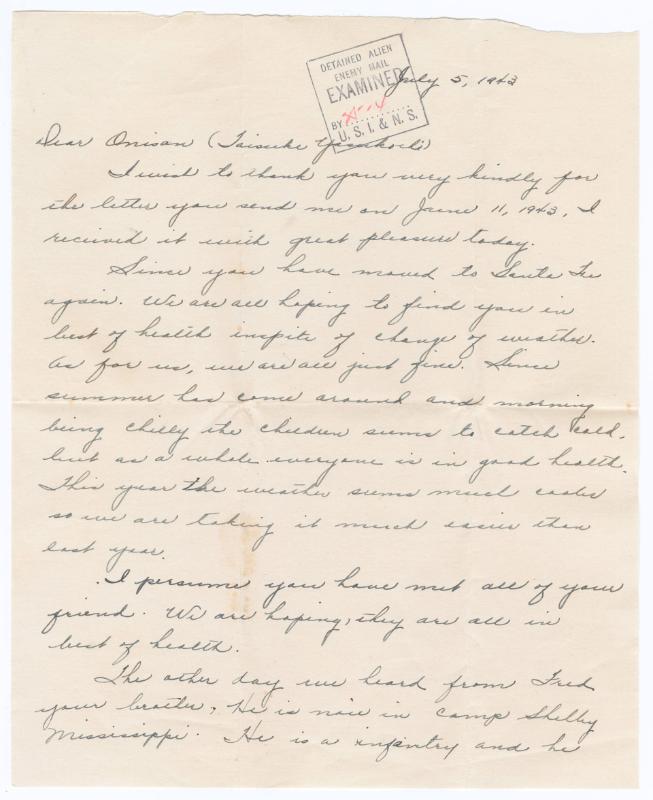 DETAINED ALIEN
ENEMY MAIL
EXAMINED
BY
U. S. I. & N. S.
July 5, 1943
Dear Onisan (Taisuke Yasukochi)
I wish to thank you very kindly for
the letter you send me on June 11, 1943. I
received it with great pleasure today.
Since you have moved to Santa Fe
again. We are all hoping to find you in
best of health inspite of change of weather.
As for us, we are all just fine. Since
summer has come around and morning
being chilly the children seems to catch cold.
but as a whole everyone is in good health.
This year the weather seems much cooler
so we are taking it much easier than
last year.
I persume you have met all of your
friend. We are hoping, they are all in
best of health.
The other day we heard from Fred
your broiter, He is now in camp Shelby
Mississippi. He is a infantry and he